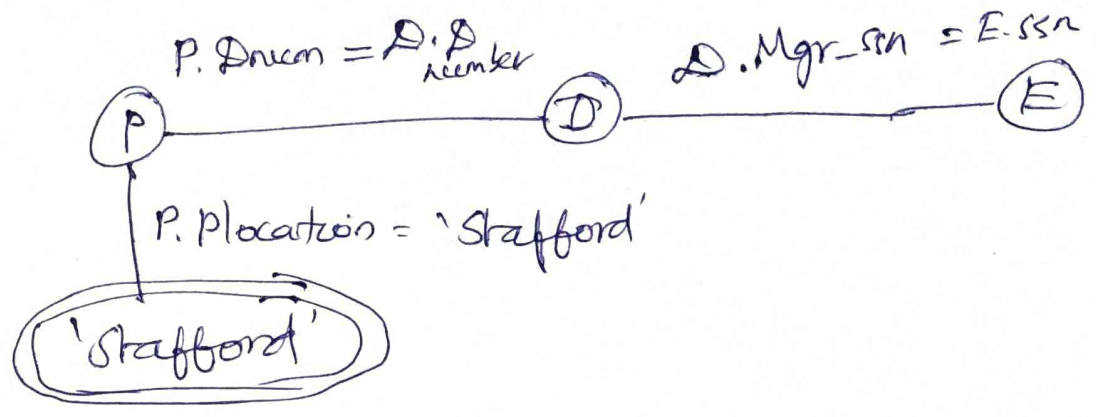 P. Dnum = D.D
number
D.Mgr_ssn = E.ssn
P
D
E
P. Plocation = 'Stafford'
'Stafford'